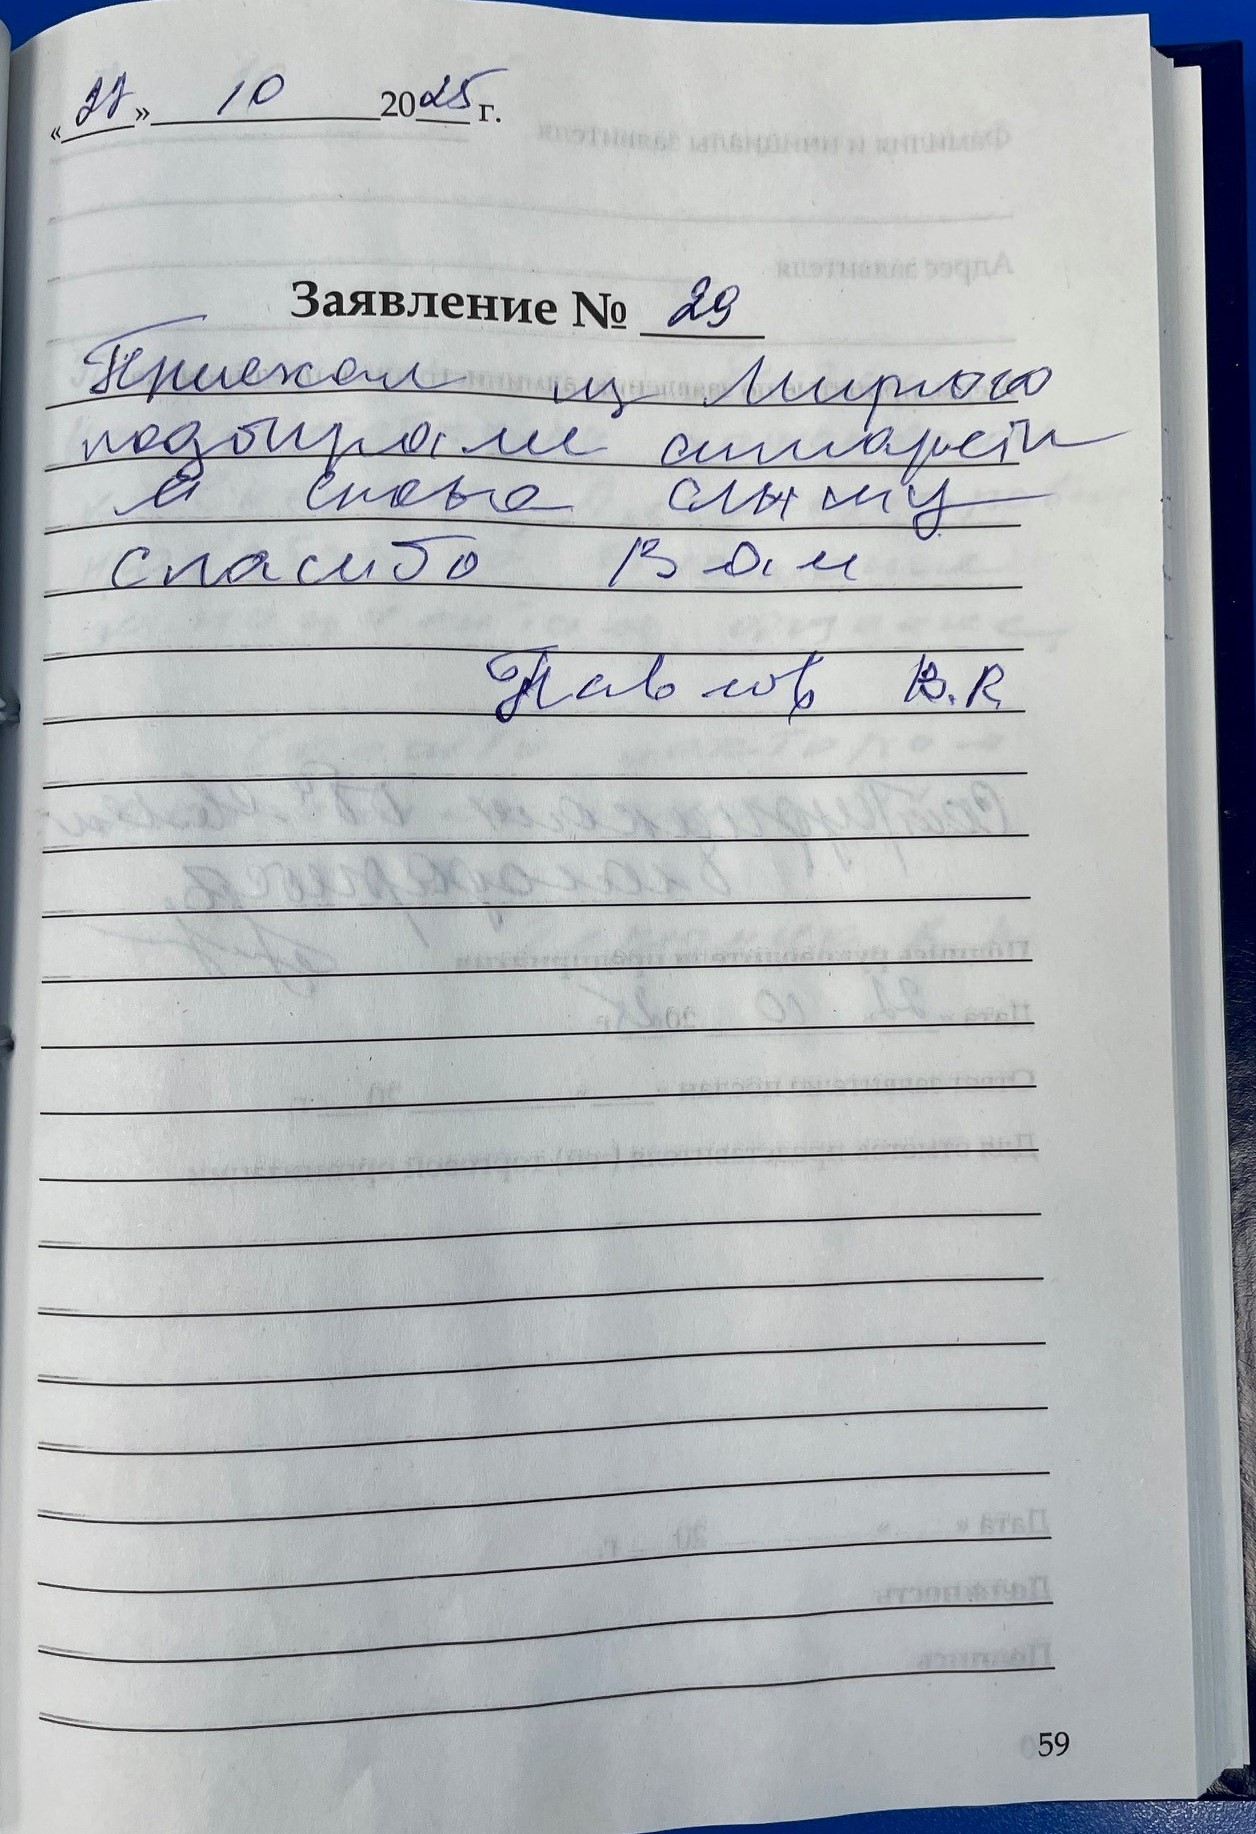 «27» 10 2025 г.
Заявление № 29
Приехал из Мирного
подбирали аппараты
я снова слышу
спасибо Вам
Павлов В.К.
59